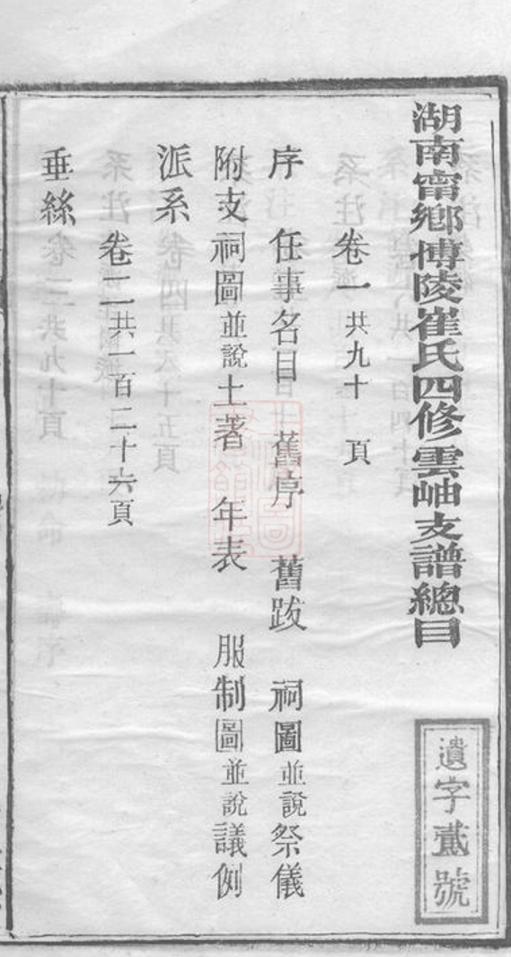 湖南甯鄉博陵崔氏四修雲岫支譜總目
遺字貳號
卷一共九十 頁
序 任事名目 舊序 舊跋 祠圖並說祭儀
附支祠圖並說土著 年表 服制圖並說議例
派系
卷二共一百二十六頁
垂絲